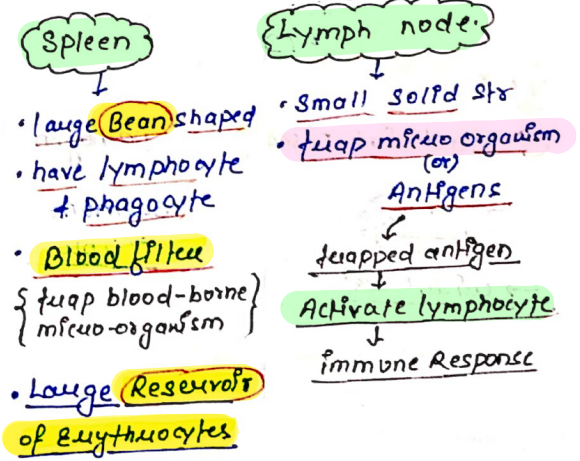 Spleen
• large Bean shaped
• have lymphocyte
& phagocyte
• Blood filter
{ trap blood-borne
micro-organism }
• Large Reservoir
of Erythrocytes
Lymph node.
• Small solid str
• trap micro organism
(or)
Antigens
trapped antigen
Activate lymphocyte
immune Response